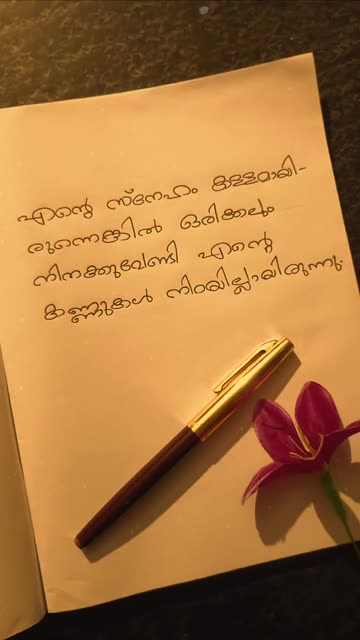 എന്റെ സ്നേഹം കള്ളമായി-
രുന്നെങ്കിൽ ഒരിക്കലും
നിനക്കുവേണ്ടി എന്റെ
കണ്ണുകൾ നിറയില്ലായിരുന്നു.